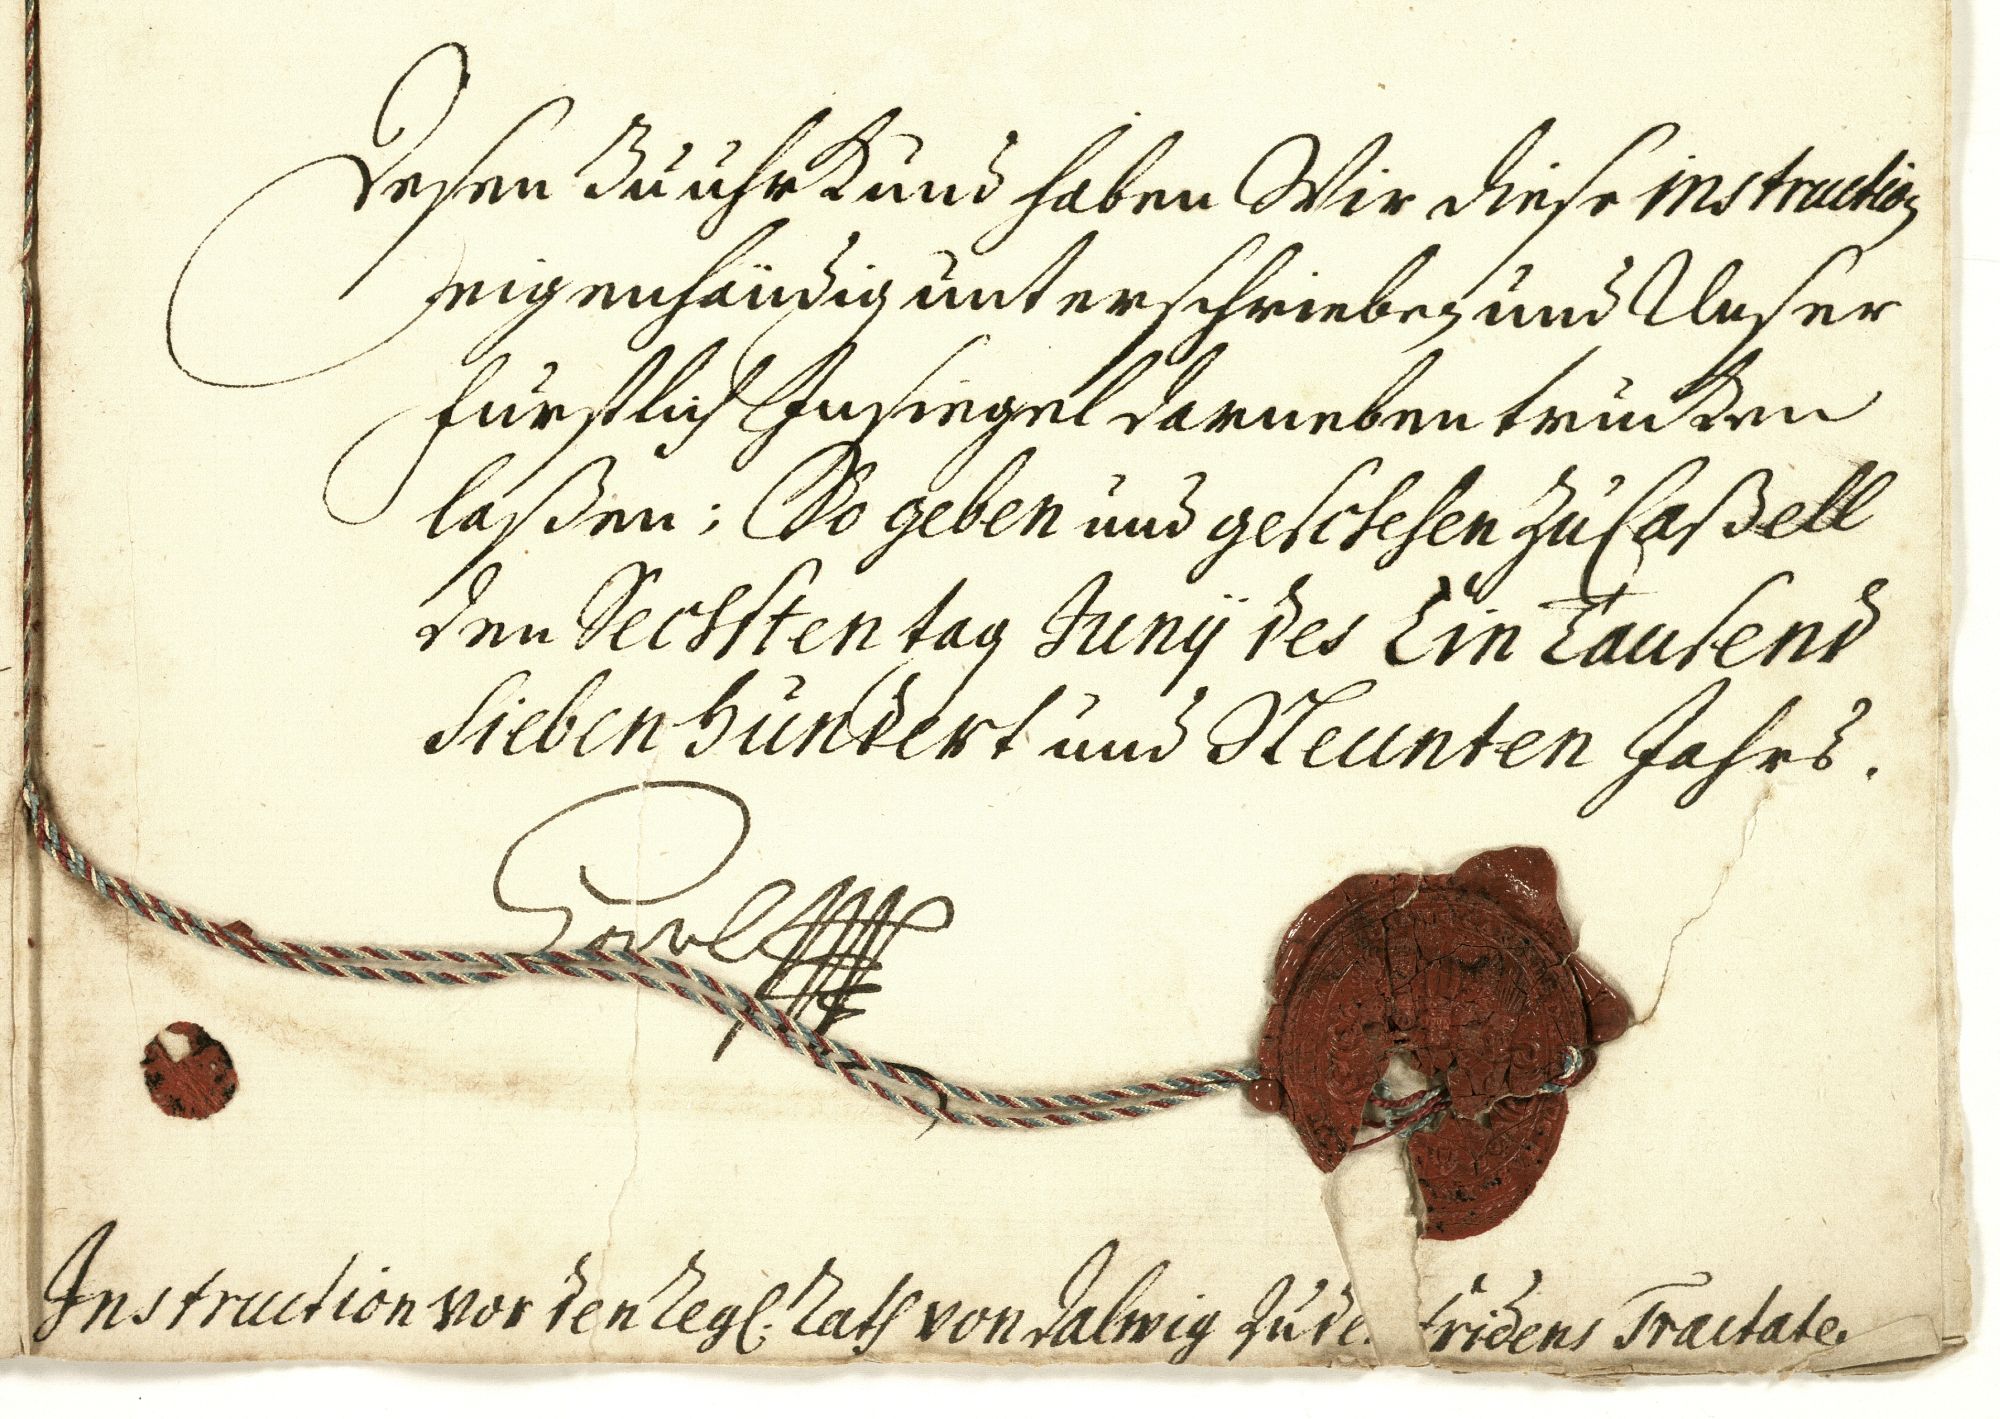 Deßen zu uhrkund haben Wir diese instruction
eigenhändig unterschrieben und Unser
fürstlich Insiegel darneben trücken
laßen; So geben und geschehen zu Caßell
den Sechsten tag Junij des Ein Tausend
Sieben hundert und Neunten Jahrs.
Carl
Instruction vor den Regl. Rath von Dalwig zu de fridens Tractaten